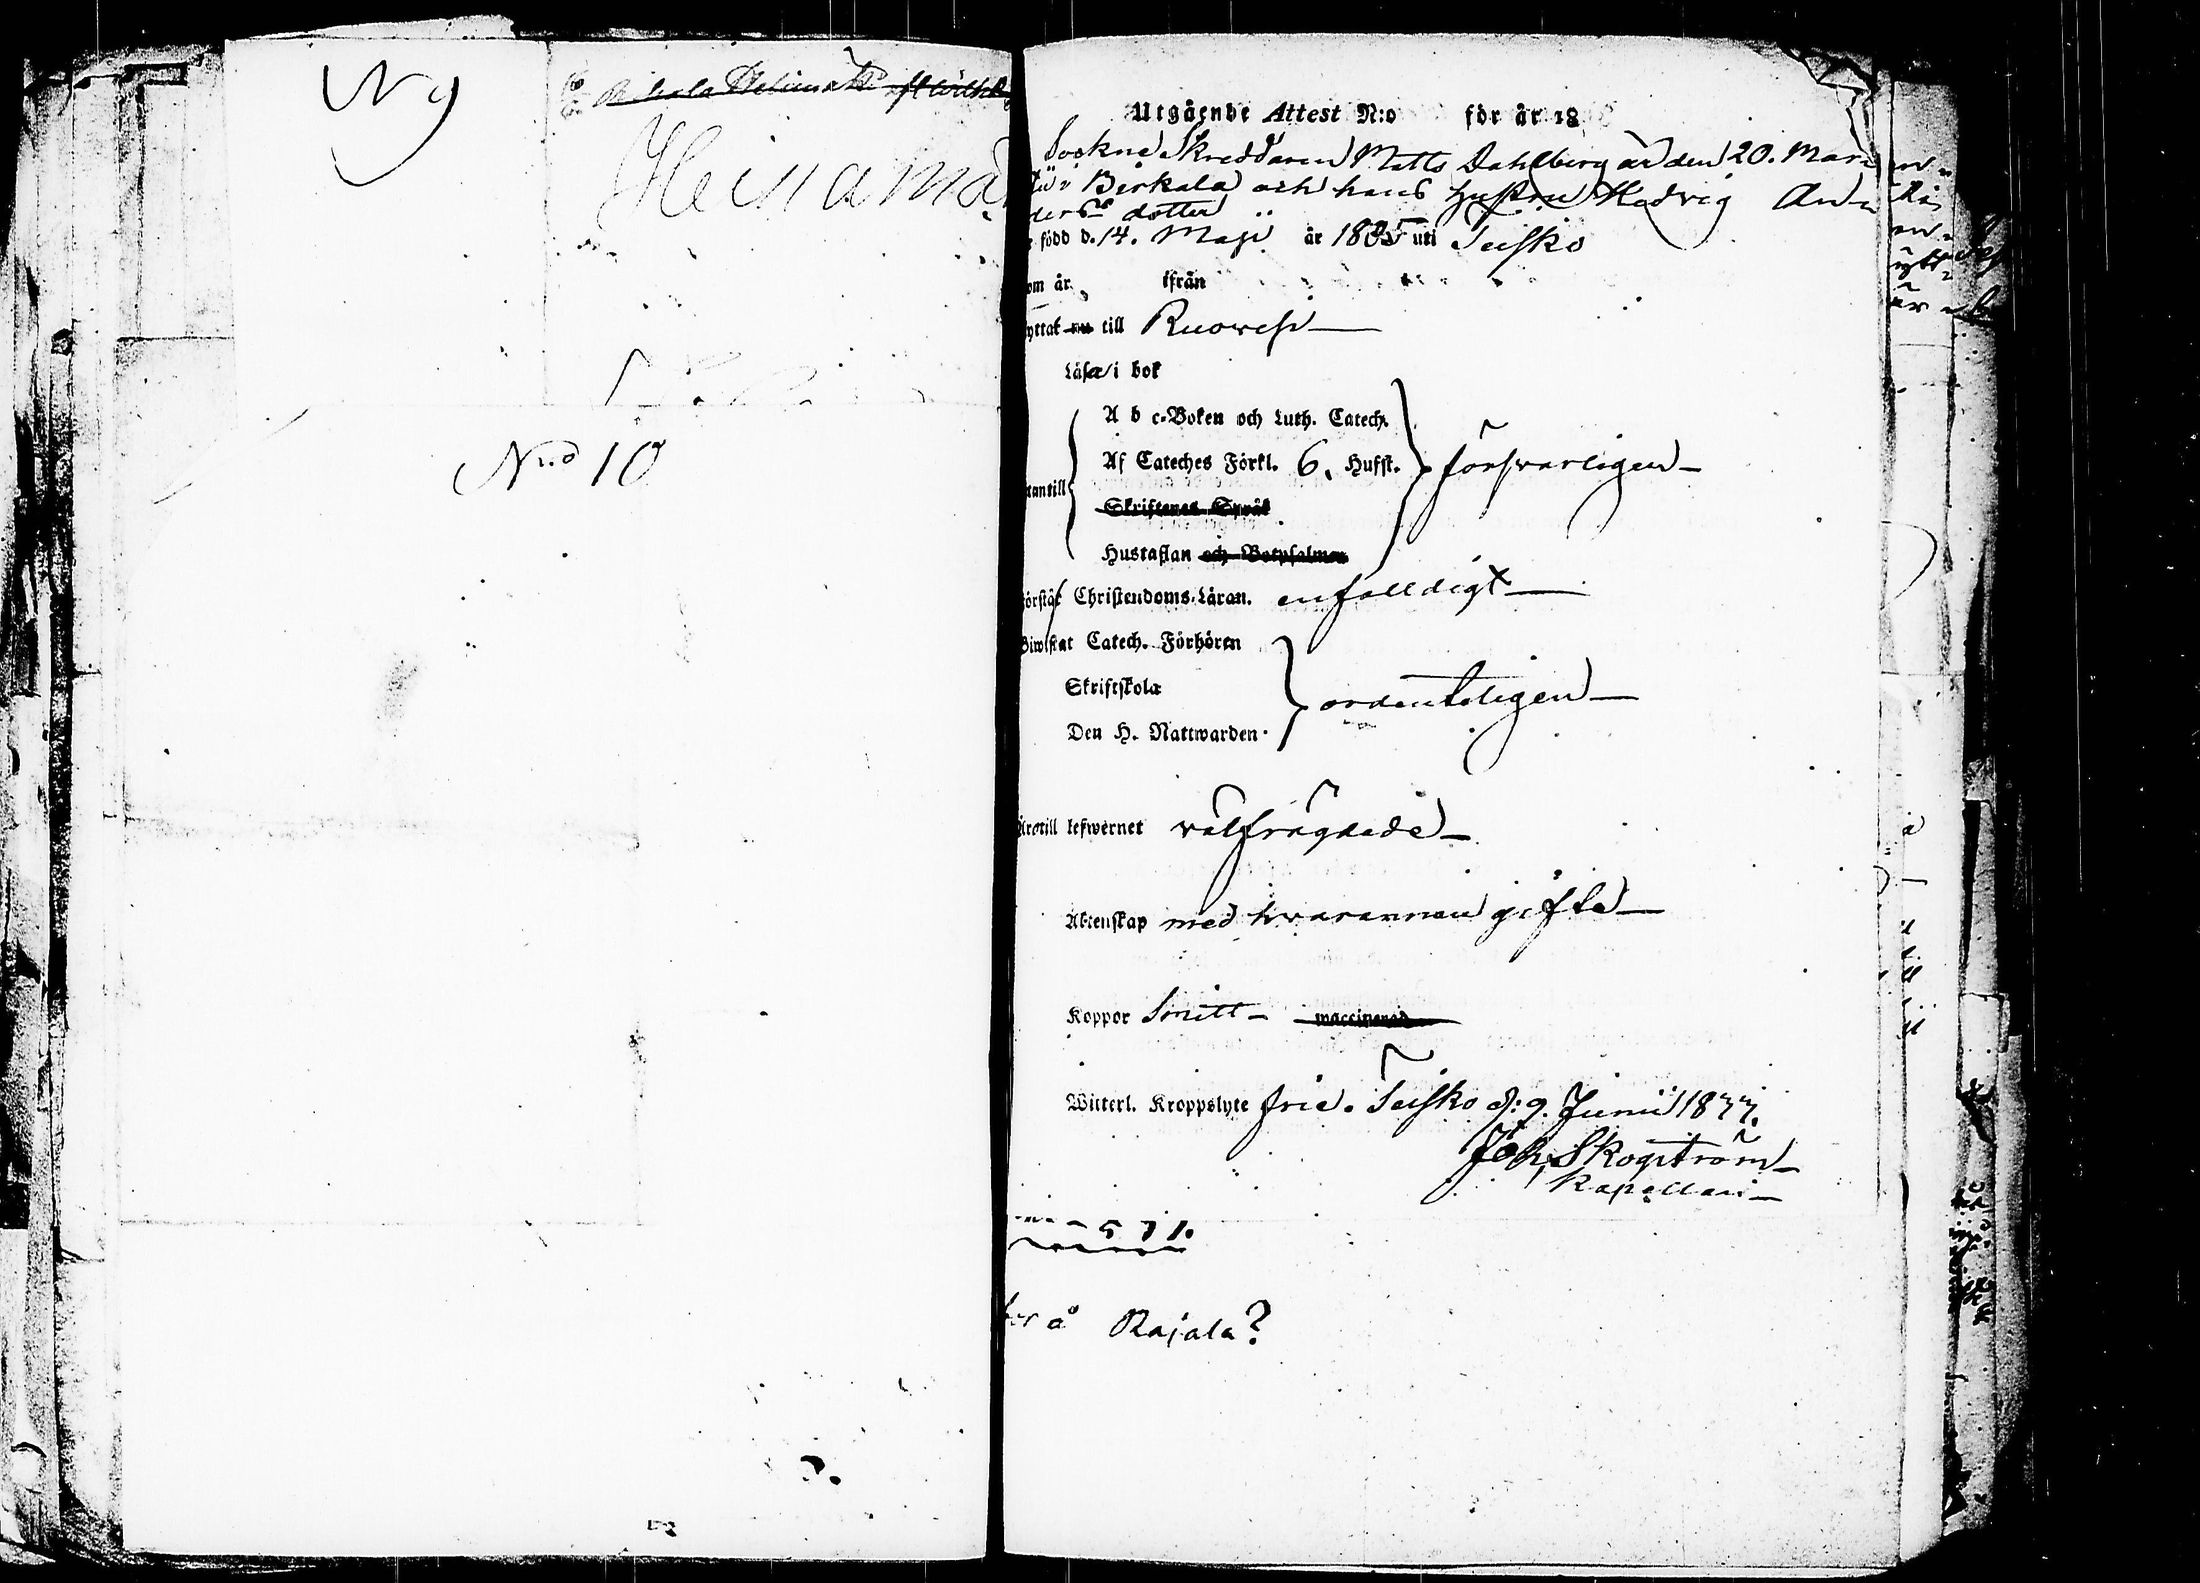 N 9
Heinämä
N:o 10
Utgående Attest N:o för år 18
Sockne Skreddaren Matts Dahlberg är den 20. Mars
Birkala och hans hustru Hedvig An-
ders dotter
född d. 14. Maji år 1835 uti Teisko
om år ifrån
yttat nu till Ruovesi
Läsa i bok
A b c-Boken och Luth. Catech.
Af Cateches Förkl. 6. Hufst. försvarligen
utantill
Skriftenes Språk
Hustaflan och Botpsalmen
Förstå Christendoms-Läran. enfalldigt
Biwistat Catech. Förhören
Skriftskola ordenteligen
Den H. Nattwarden
Äro till lefwernet välfrägdade
Äktenskap med hvarannan gifte
Koppor Smitt waccinerad
Witterl. Kroppslyte frie. Teisko d: 9. Junii 1877.
Joh. Skogström
Kapellan
571.
å Rajala?